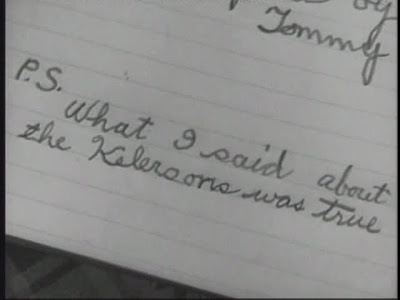 by
Tommy
P.S.
What I said about
the Kelersons was true